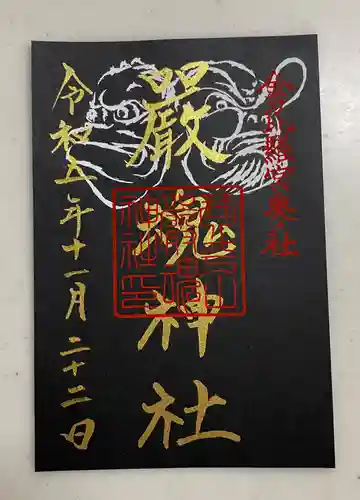 金刀比羅宮奥社
嚴魂神社
令和五年十一月二十二日